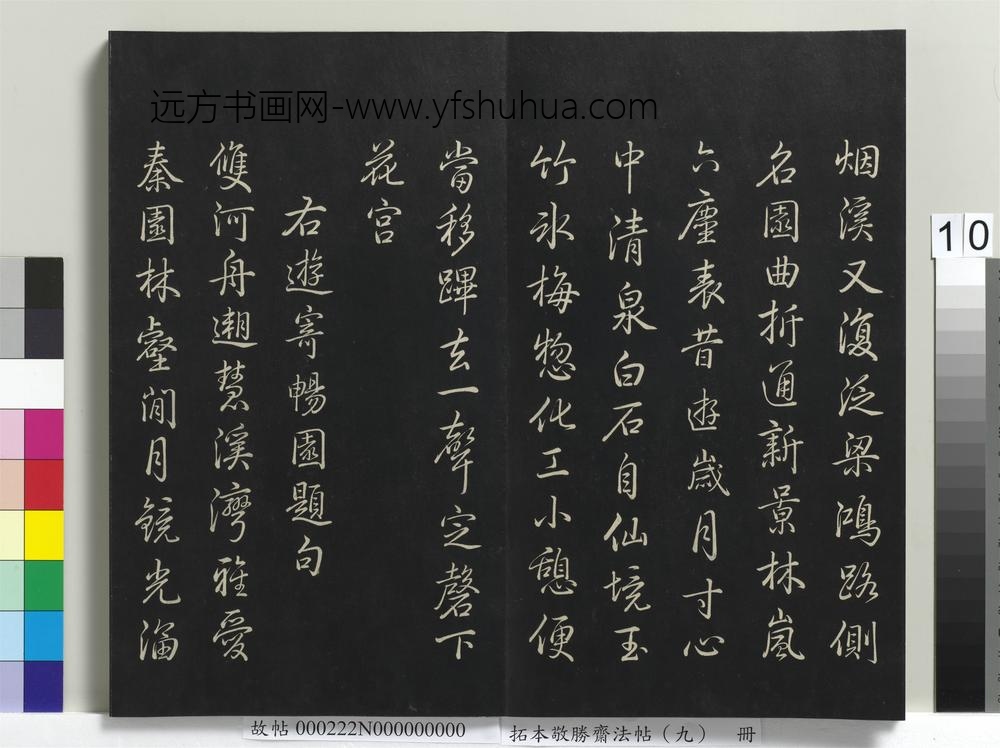 远方书画网-www.yfshuhua.com
烟溪又復泛梁鴻路側
名園曲折通新景林嵐
六塵表昔遊歲月寸心
中清泉白石自仙境玉
竹冰梅惣化工小憩便
當移蹕去一聲定磬下
花宫
右遊寄暢園題句
雙河舟遡慧溪灣雅愛
秦園林壑閒月鏡光涵
10
故帖 000222N000000000
拓本敬勝齋法帖（九） 冊